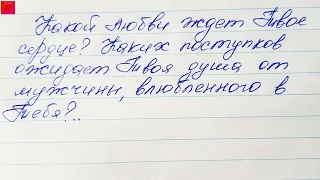 Какой любви ждет Твое
сердце? Каких поступков
ожидает Твоя душа от
мужчины, влюбленного в
Тебя?..